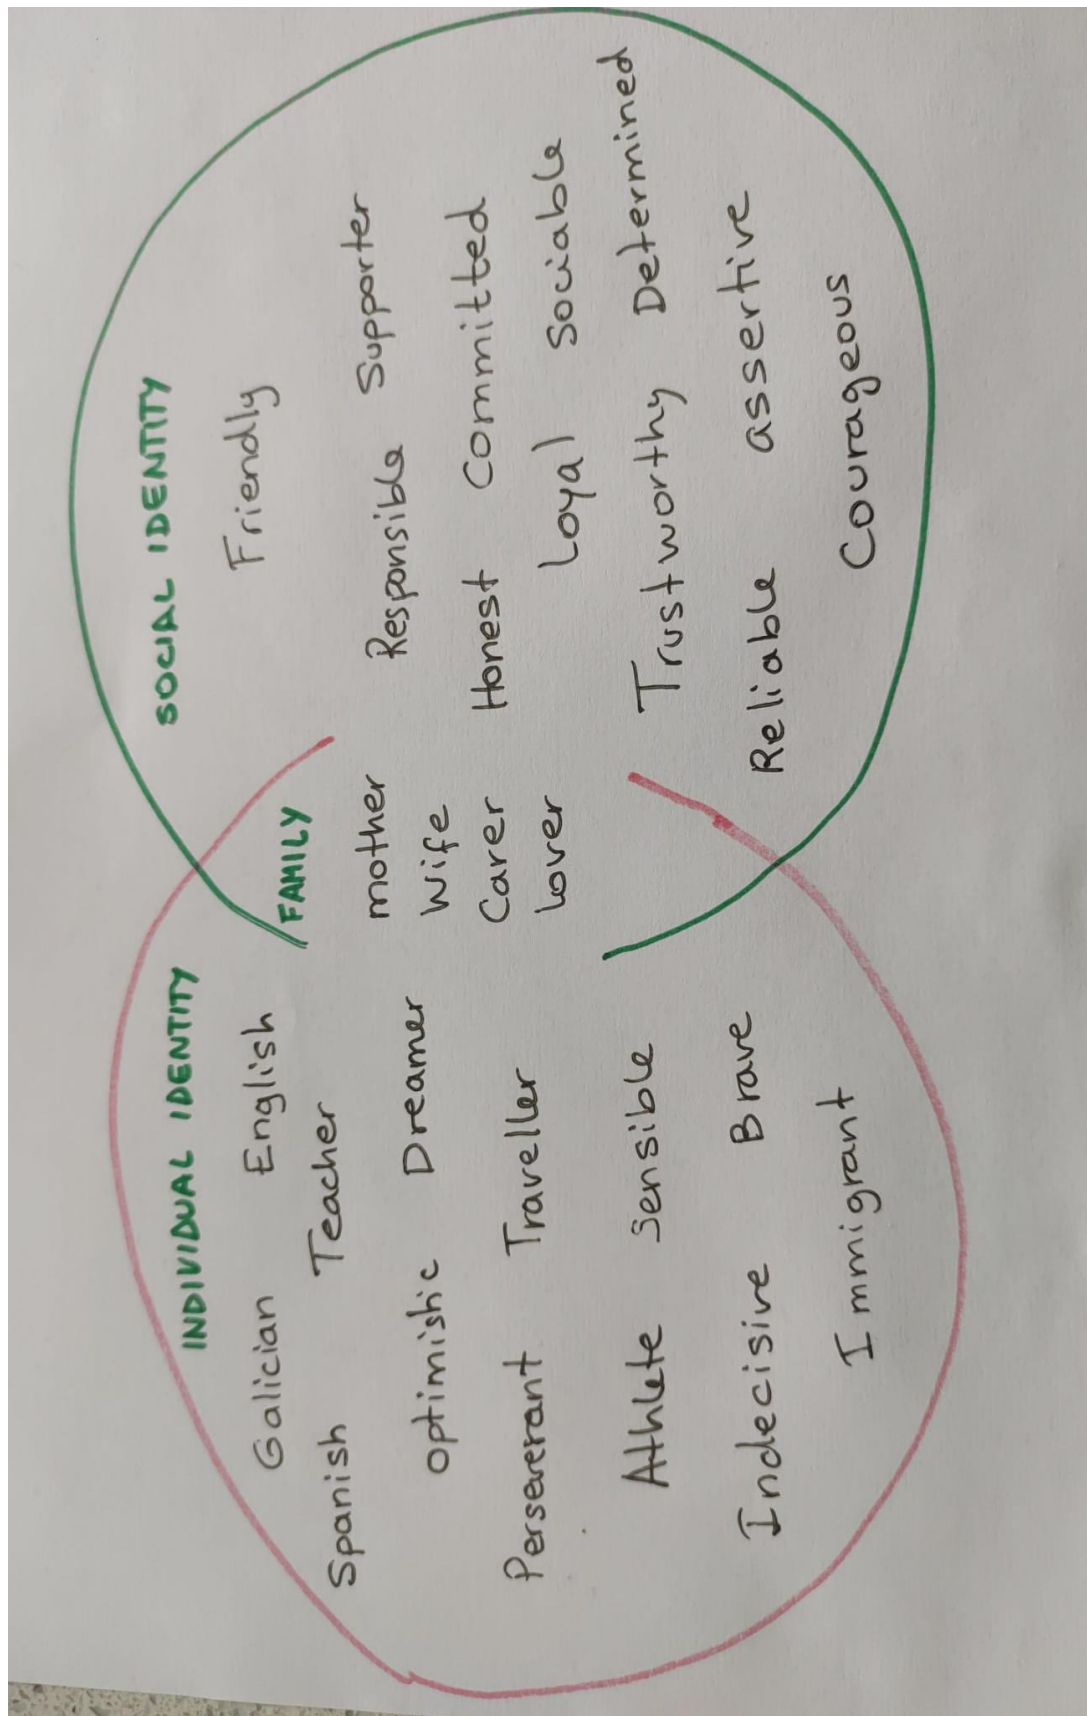 INDIVIDUAL IDENTITY
Galician English
Spanish Teacher
optimistic Dreamer
Perseverant Traveller
Athlete sensible
Indecisive Brave
Immigrant
FAMILY
mother
Wife
Carer
Lover
SOCIAL IDENTITY
Friendly
Responsible Supporter
Honest Committed
Loyal Sociable
Trustworthy Determined
Reliable assertive
Courageous